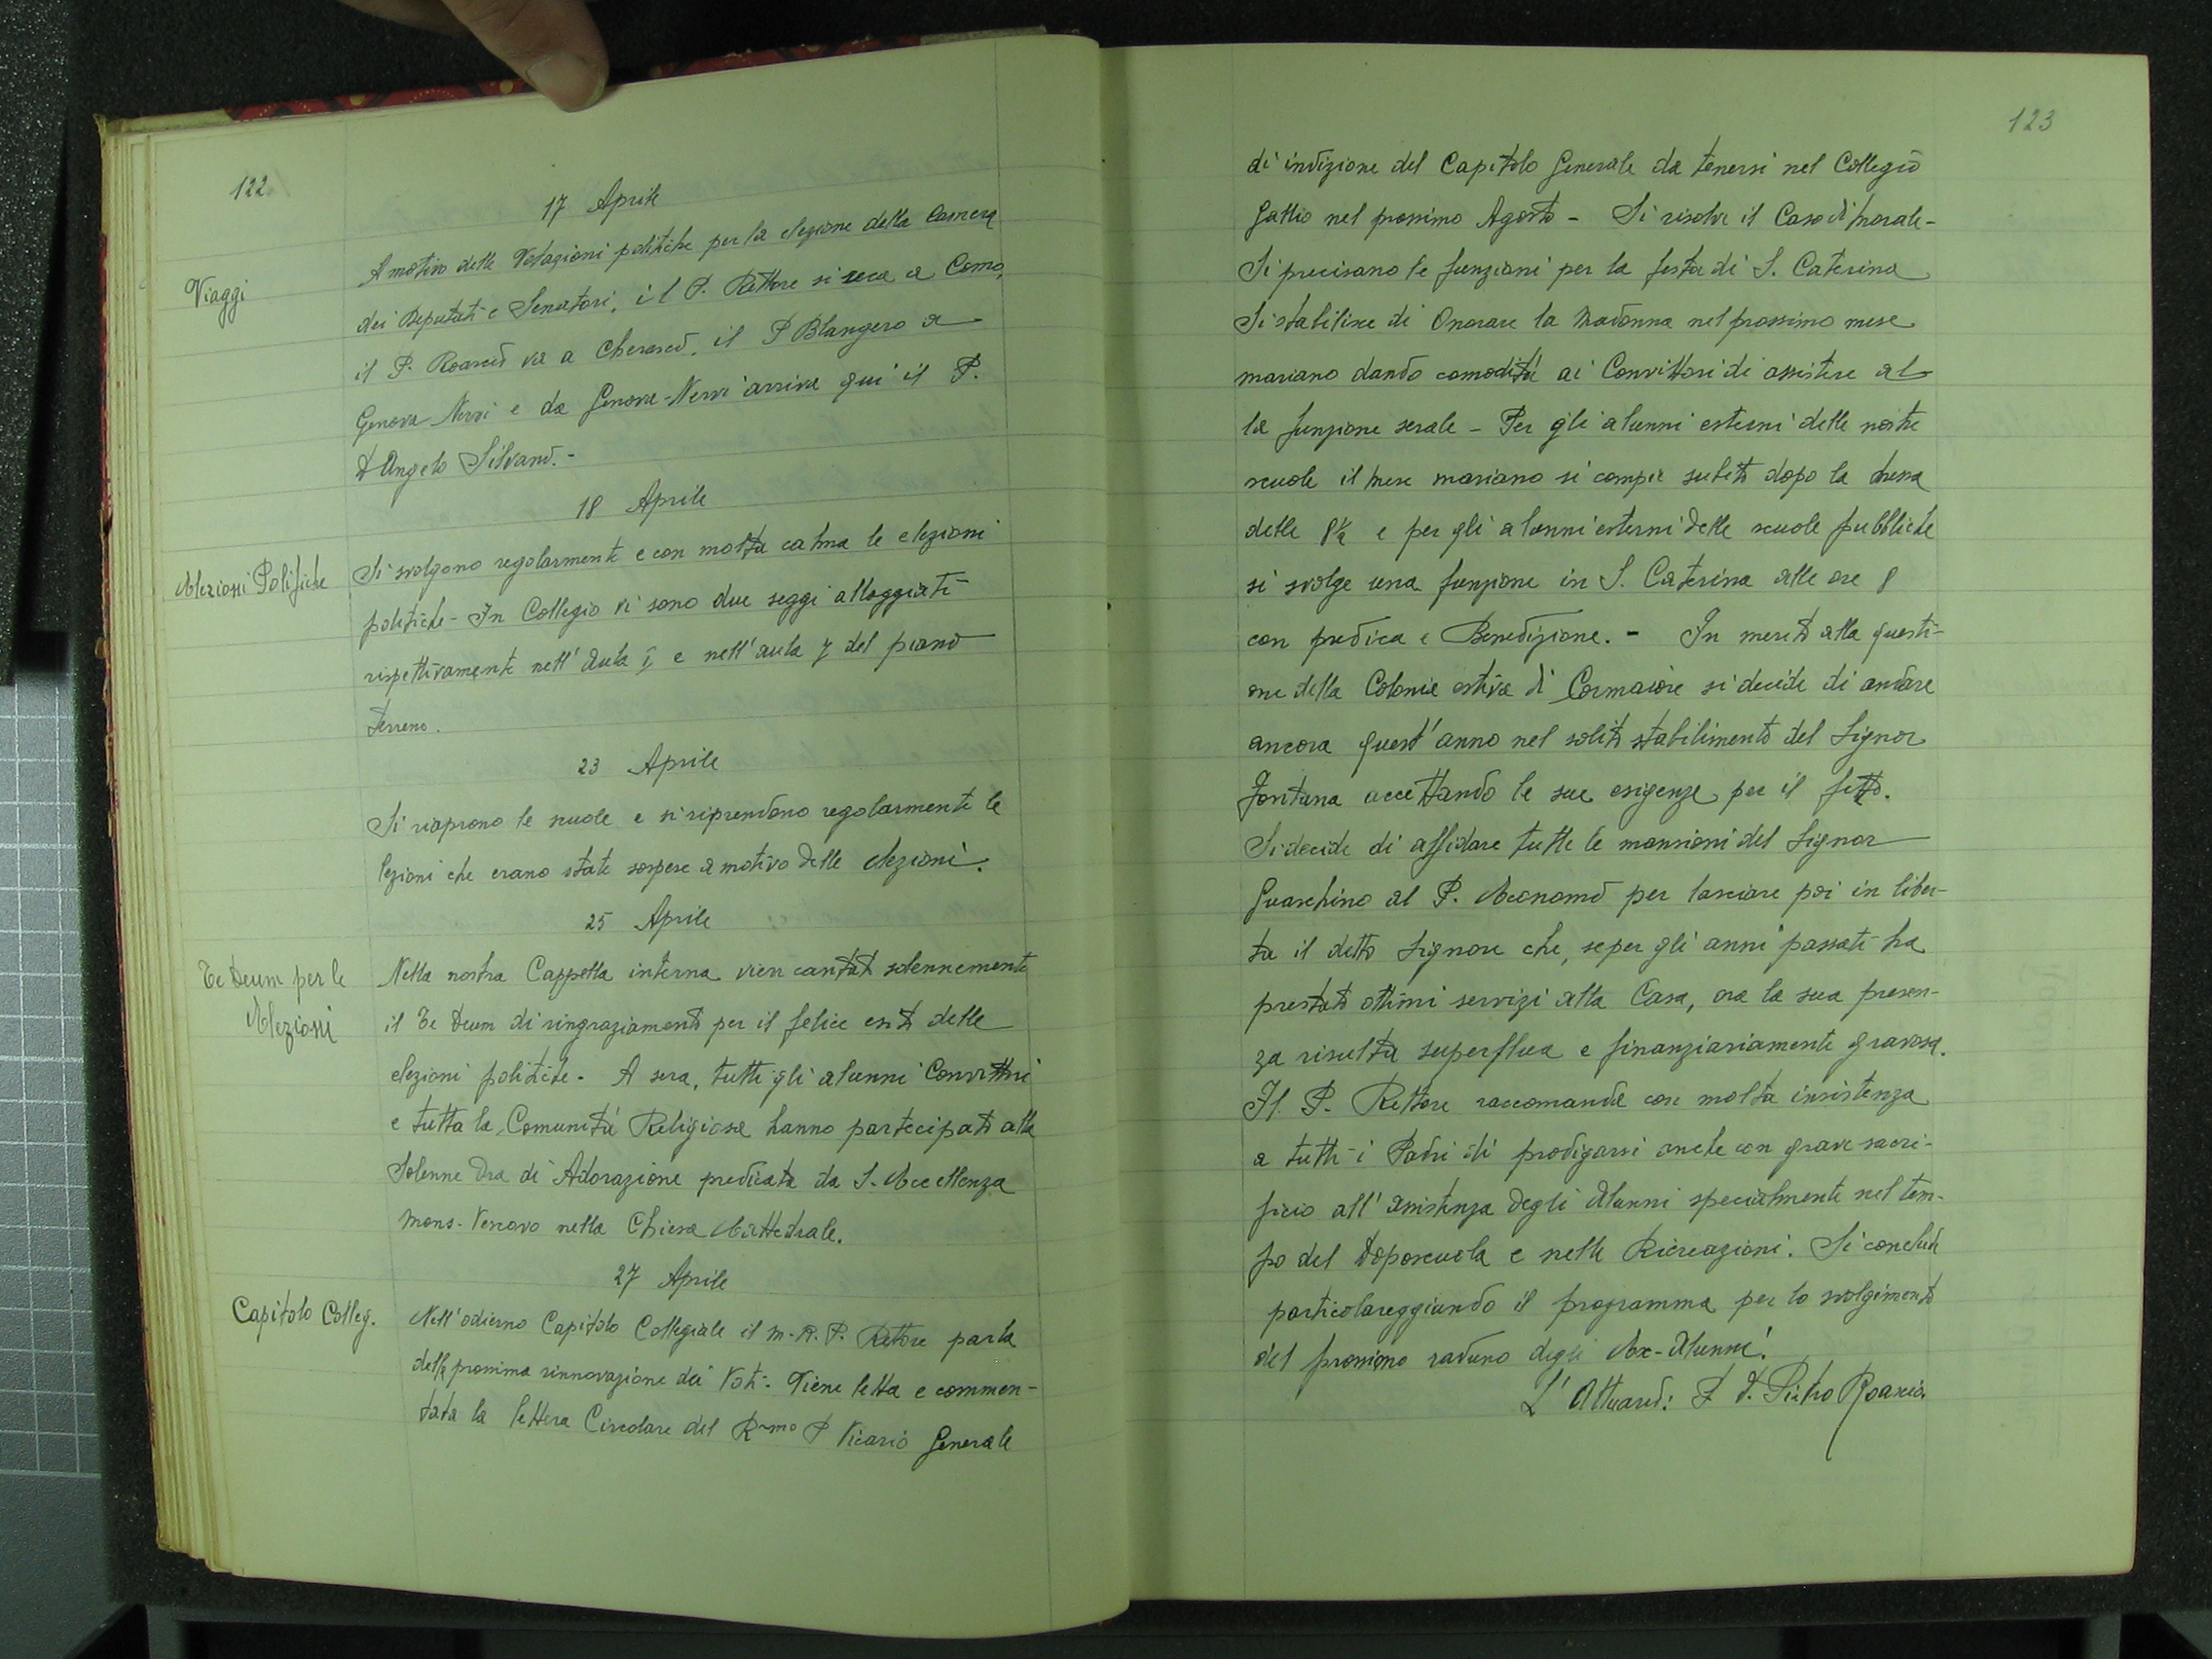 122
17 Aprile
Viaggi
A motivo delle Votazioni politiche per la elezione della Camera
dei Deputati e Senatori, il P. Rettore si reca a Como,
il P. Roascio va a Cherasco, il P Blangero a
Genova Nervi e da Genova-Nervi arriva qui il P.
D'Angelo Silvano.-
18 Aprile
Elezioni Politiche
Si svolgono regolarmente e con molta calma le elezioni
politiche - In Collegio vi sono due seggi alloggiati
rispettivamente nell'Aula e nell'aula 7 del piano
terreno.
23 Aprile
Si riaprono le scuole e si riprendono regolarmente le
lezioni che erano state sospese a motivo delle elezioni.
25 Aprile
Te Deum per le
Elezioni
Nella nostra Cappella interna vien cantato solennemente
il Te Deum di ringraziamento per il felice esito delle
elezioni politiche. A sera, tutti gli alunni Convittori
e tutta la Comunità Religiosa hanno partecipato alla
Solenne Ora di Adorazione predicata da S. Eccellenza
Mons. Vescovo nella Chiesa Cattedrale.
27 Aprile
Capitolo Colleg.
Nell'odierno Capitolo Collegiale il M. R. P. Rettore parla
della prossima rinnovazione dei Voti. Viene letta e commen-
tata la lettera Circolare del R~mo P Vicario Generale
123
di indizione del Capitolo Generale da tenersi nel Collegio
Gallio nel prossimo Agosto - Si risolve il Caso di Morale -
Si precisano le funzioni per la festa di S. Caterina
Si stabilisce di Onorare la Madonna nel prossimo mese
mariano dando comodità ai Convittori di assistere al
la funzione serale - Per gli alunni esterni delle nostre
scuole il Mese mariano si compie subito dopo la Messa
delle 8½ e per gli alunni esterni delle scuole pubbliche
si svolge una funzione in S. Caterina alle ore 8
con predica e Benedizione. - In merito alla questi-
one della Colonia estiva di Cormaiore si decide di andare
ancora quest'anno nel solito stabilimento del Signor
Fontana accettando le sue esigenze per il fitto.
Si decide di affidare tutte le mansioni del Signor
Guaschino al P. Economo per lasciare poi in liber-
tà il detto Signore che, se per gli anni passati ha
prestato ottimi servizi alla Casa, ora la sua presen-
za risulta superflua e finanziariamente gravosa.
Il P. Rettore raccomanda con molta insistenza
a tutti i Padri di prodigarsi anche con grave sacri-
ficio all'assistenza degli Alunni specialmente nel tem-
po del Doposcuola e nelle Ricreazioni. Si conclude
particolareggiando il programma per lo svolgimento
del prossimo raduno degli Ex-Alunni.
L'Attuario: P. D. Pietro Roascio